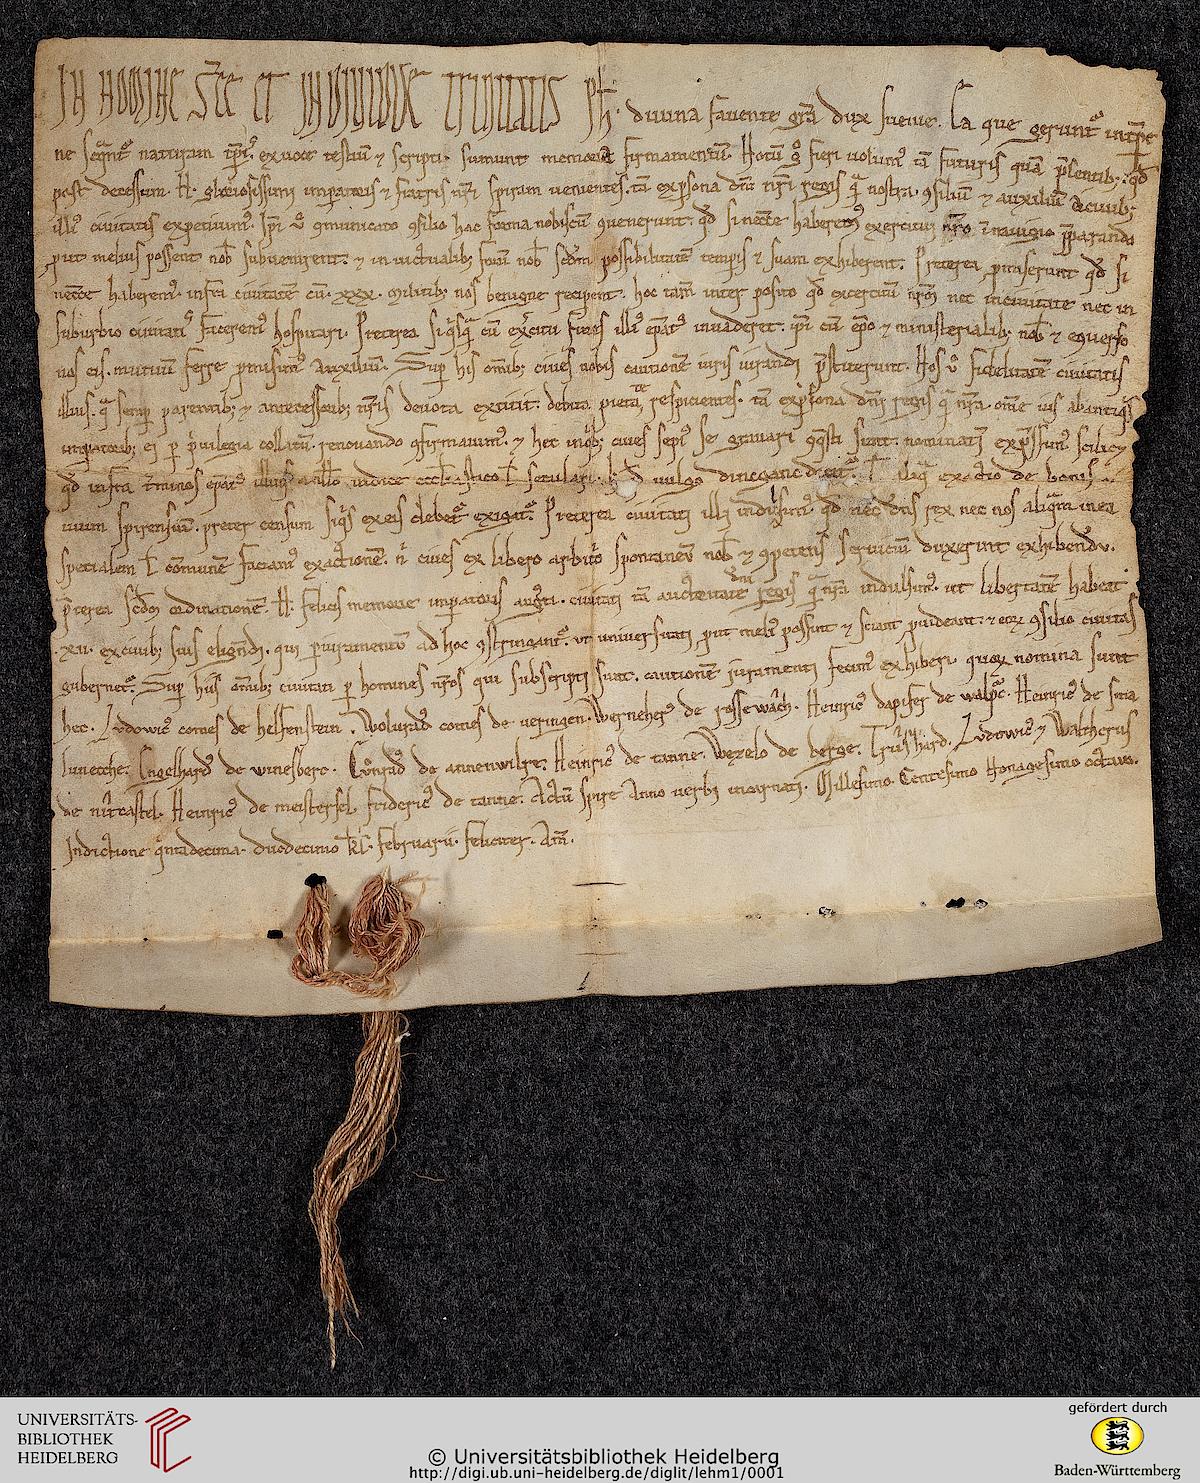 IN NOMINE SCE ET INDIVIDVE TRINITATIS Ph. divina favente gra dux suevie. Ea que gerunt in tpre
ne seqant naturam tpris, ex voce testiu et scripti sumunt memorie firmamentu. Notu g fieri volum ta futuris qua psentib; qd
post decessum H. gloriosissimi imperatoris et fratris nri spiram venientes. ta ex psona dni nri regis q nostra. 9siliu et auxiliu a civib;
illi civitatis expetivim. Ipi v 9municato 9silio hac forma nobiscu 9venerunt. qd si necce haberem exercitui nro i navigio pparando
put melius possent nob subvenirent. et in victualib; foru nob scdm possibilitate temporis et suam exhiberent. Preterea pmiserunt qd si
necce haberem infra civitate cu .xxx. militib; nos benigne reciperent. hoc tam interposito qd exercitu nrm nec in civitate nec in
suburbio civitatis facerem hospitari. Preterea si qsq cu exercitu fines illi epat invaderet. ipi cu epo et ministerialib; nob et econverso
nos eis mutuu ferre pmisim auxiliu. Sup his omib; cives nobis cautione iuris iurandi pstiterunt. Nos v fidelitate civitatis
illius. q semp parentib; et antecessorib; nris devota extitit. debita pietate respicientes. ta ex psona dni regis q nra. ome ius ab antiqis
impatorib; ei p pvilegia collatu. renovando 9firmavim. et hec in qb; cives sepi se gravari 9qsti sunt. nominati expssim. scilicet
qd infra tminos epat illius a nullo iudice ecclesiastico l seculari. hoc qd vulgo dincganc dicit. l aliq exactio de bonis ci
vium spirensiu. preter censum siqs ex eis debet exigat. Preterea civitati illi indulsim qd nec dns rex nec nos aliqam in ea
specialem l comune faciam exactione. n cives ex libero arbitrio spontaneu nob et 9petens serviciu duxerint exhibendu.
Preterea scdm ordinatione H. felicis memorie imperatoris augusti. civitati ta auctoritate dni regis q nra indulsim. ut libertate habeat
.xii. ex civib; suis eligendi. qui p iuramentu ad hoc 9stringant. ut universitati put melius possint et sciant pvideant. et eorum 9silio civitas
gubernet. Sup hiis omib; civitati p homines nros qui subscripti sunt. cautione iuramenti fecim exhiberi. quorum nomina sunt
hec. Ludowic comes de helfenstein. Wolvrad comes de veringen. Werneher de rossewach. Heinric dapifer de walpc. Heinric de sma
lunecche. Engelhard de winesberc. Cunrad de annenwilre. Heinric de tanne. Wezelo de berge. Trushard. Ludowic et Waltherus
de nircastel. Heinric de meistersel. frideric de tanne. Actu spire Anno verbi incarnati. Millesimo. Centesimo Nonagesimo octavo.
Indictione qntadecima. duodecimo kl. februarii. feliciter. Am.
UNIVERSITÄTS-
BIBLIOTHEK
HEIDELBERG
© Universitätsbibliothek Heidelberg
http://digi.ub.uni-heidelberg.de/diglit/lehm1/0001
gefördert durch
Baden-Württemberg